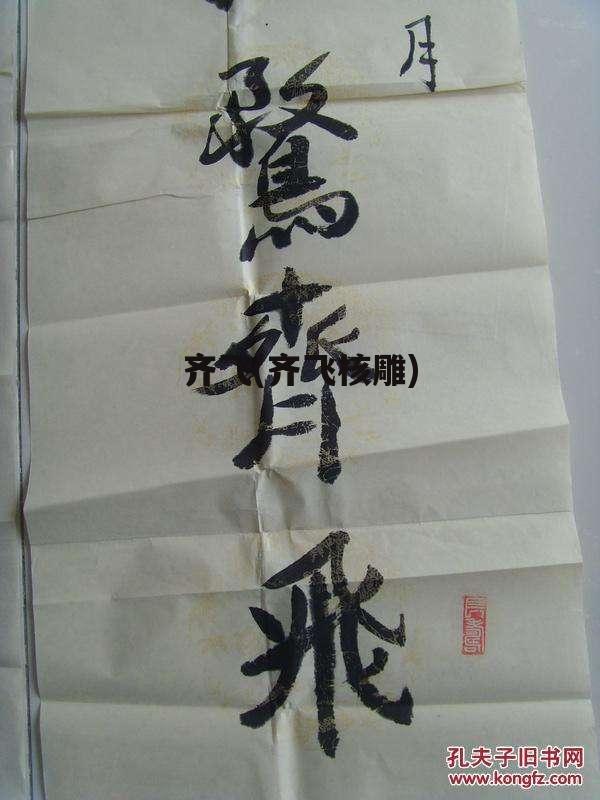 月
鶩
齊
飛
齐飞(齐飞核雕)
孔夫子旧书网
www.kongfz.com